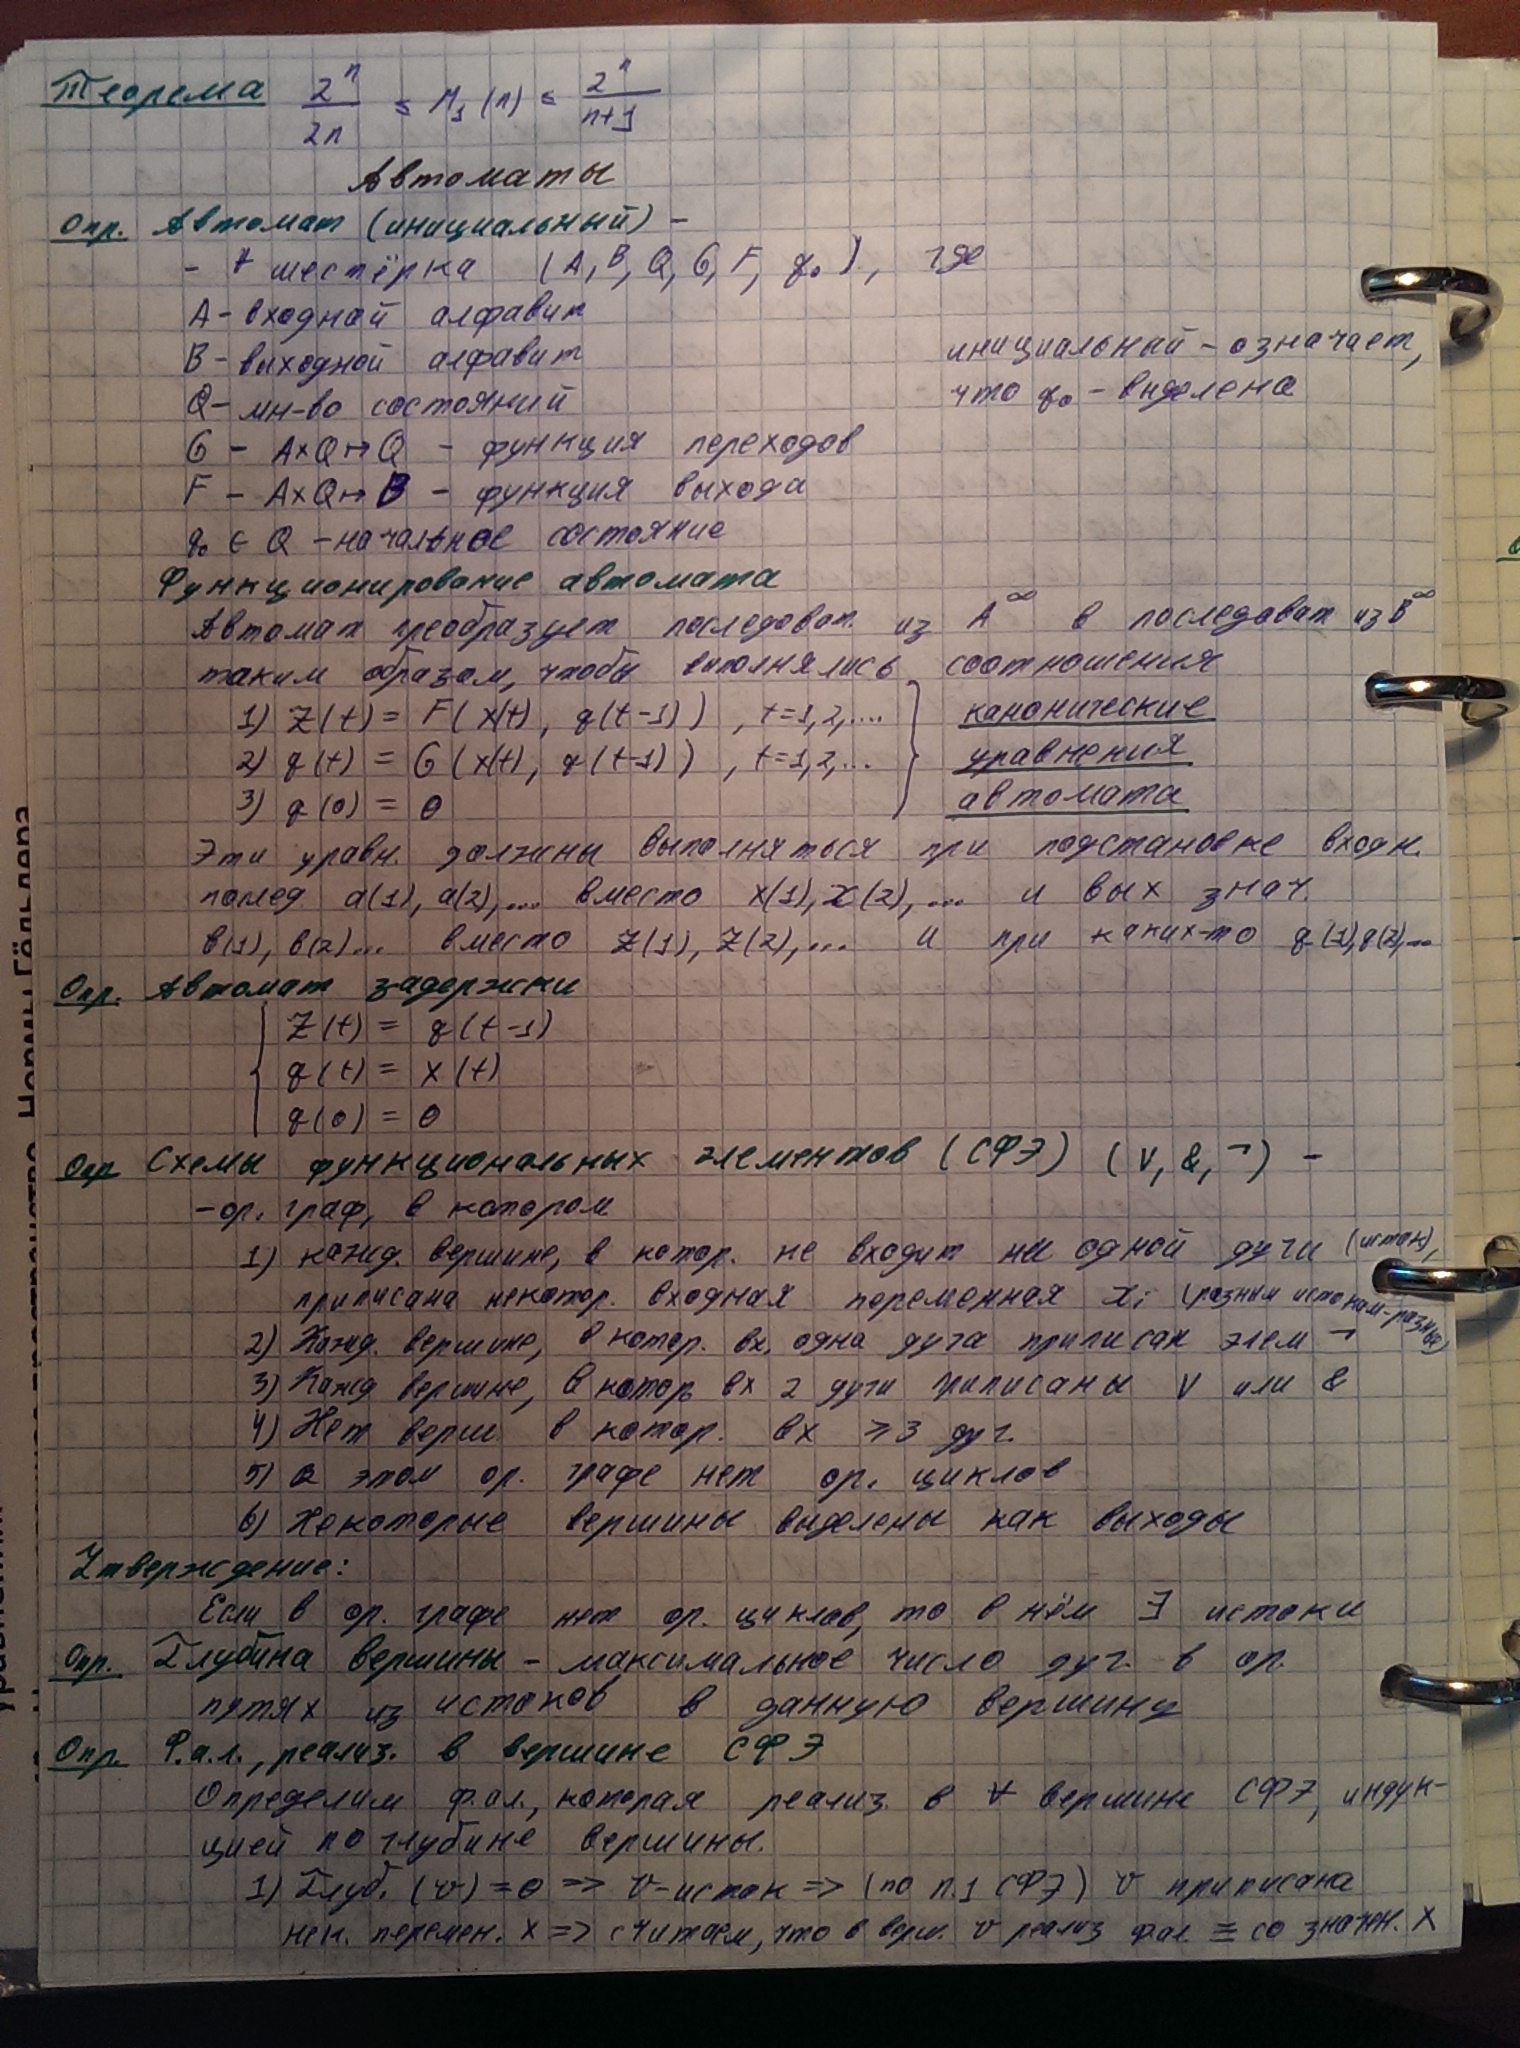 Теорема 2^n/2n ≤ M_1(n) ≤ 2^n/n+1
Автоматы
Опр. Автомат (инициальный) –
– ∀ шестёрка (A, B, Q, G, F, q_0), где
A – входной алфавит
B – выходной алфавит
инициальный – означает,
Q – мн-во состояний
что q_0 – выделена
G – A×Q↦Q – функция переходов
F – A×Q↦B – функция выхода
q_0 ∈ Q – начальное состояние
Функционирование автомата
Автомат преобразует последоват. из A^∞ в последоват из B^∞
таким образом, чтобы выполнялись соотношения
1) Z(t) = F(x(t), q(t-1)), t=1,2,....
2) q(t) = G(x(t), q(t-1)), t=1,2,...
3) q(0) = 0
канонические
уравнения
автомата
Эти уравн. должны выполняться при подстановке входн.
послед a(1), a(2),... вместо x(1), x(2),... и вых знач.
в(1), в(2)... вместо Z(1), Z(2),... и при каких-то q(1), q(2),...
Опр. Автомат задержки
Z(t) = q(t-1)
q(t) = x(t)
q(0) = 0
Опр Схемы функциональных элементов (СФЭ) (∨, &, ¬) –
– ор. граф, в котором
1) кажд. вершине, в котор. не входит ни одной дуги (исток),
приписана некотор. входная переменная x_i (разным истокам-разные)
2) Кажд. вершине, в котор. вх. одна дуга приписан элем ¬
3) Кажд вершине, в котор вх 2 дуги приписаны ∨ или &
4) Нет верш. в котор. вх ≥3 дуг.
5) в этом ор. графе нет ор. циклов
6) Некоторые вершины выделены как выходы
Утверждение:
Если в ор. графе нет ор. циклов, то в нём ∃ истоки
Опр. Глубина вершины – максимальное число дуг. в ор.
путях из истоков в данную вершину
Опр. Ф.а.л., реализ. в вершине СФЭ
Определим ф.ал., которая реализ. в ∀ вершине СФЭ, индук-
цией по глубине вершины.
1) Глуб. (v) = 0 => v – исток => (по п.1 СФЭ) v приписана
нек. перемен. x => считаем, что в верш. v реализ фал ≡ со значен. x